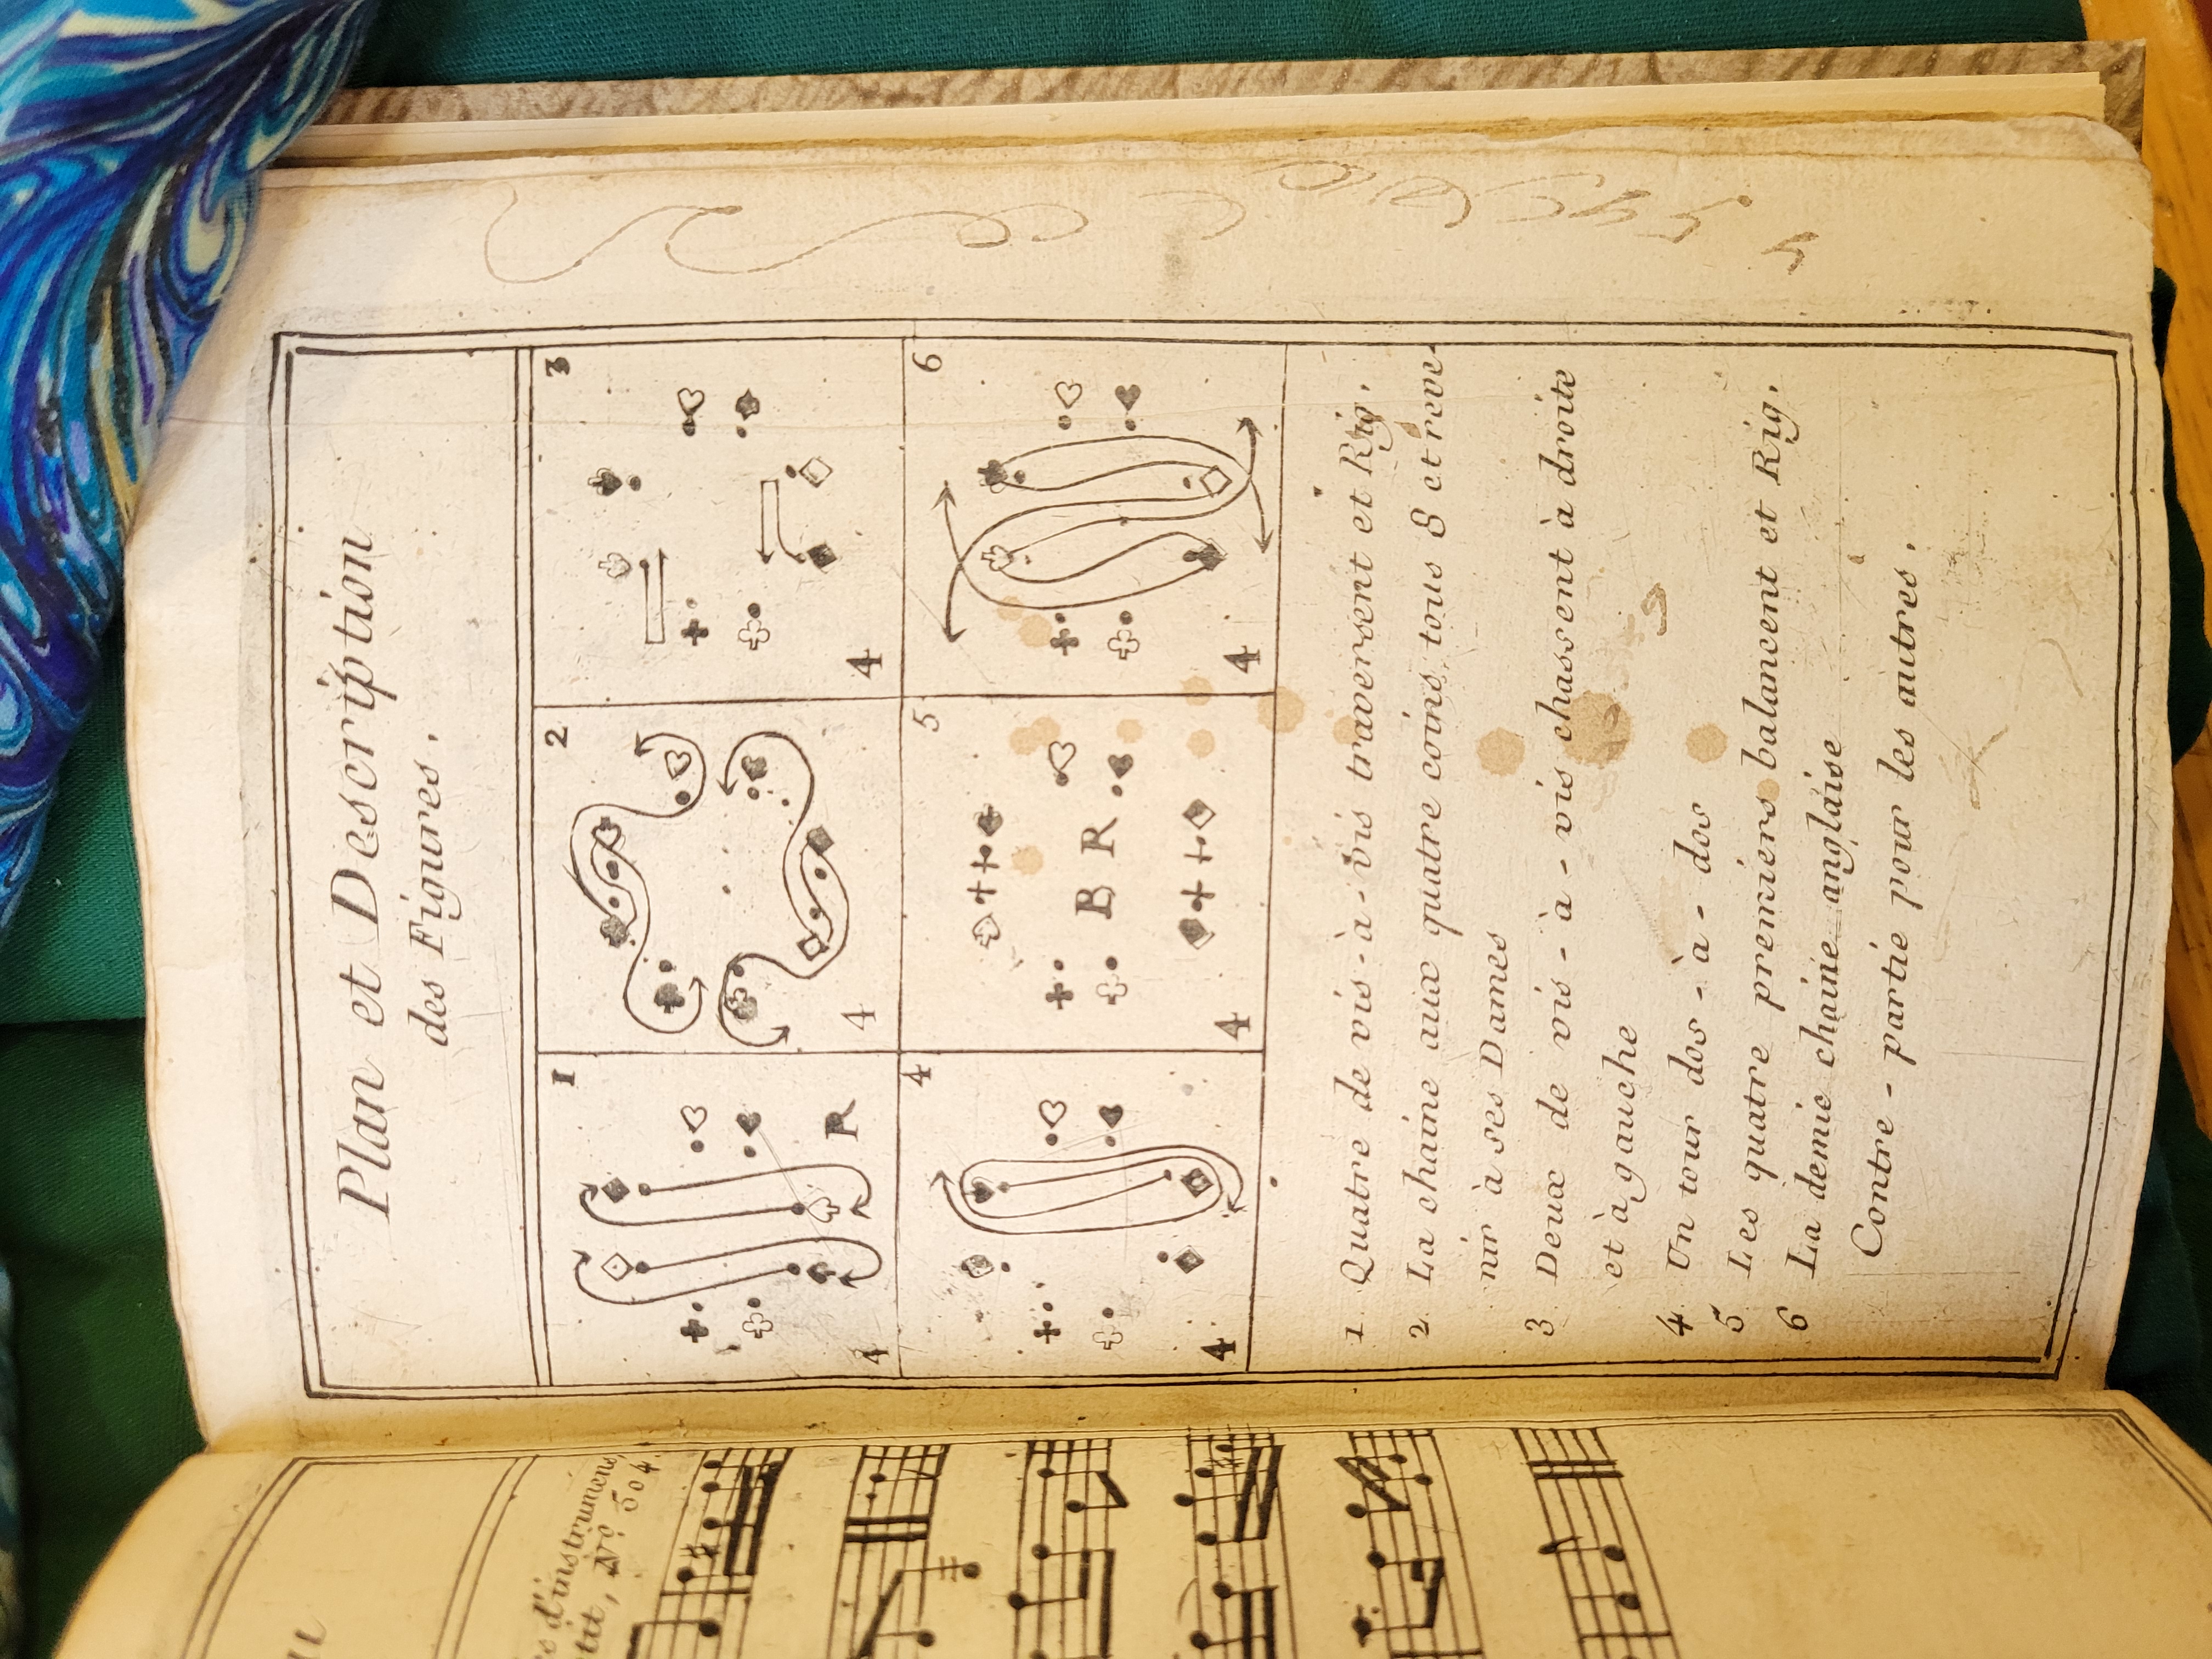 Plan et Description
des Figures.
1
2
3
R
4
4
4
4
5
6
B R
4
4
4
1 Quatre de vis-à-vis traversent et Rig.
2 La chaine aux quatre coins tous 8 et reve-
nir à ses Dames
3 Deux de vis-à-vis chassent à droite
et à gauche
4 Un tour dos-à-dos
5 Les quatre premiers balancent et Rig.
6 La demie chaine anglaise
Contre-partie pour les autres.
d'instrumens
N.º 504.